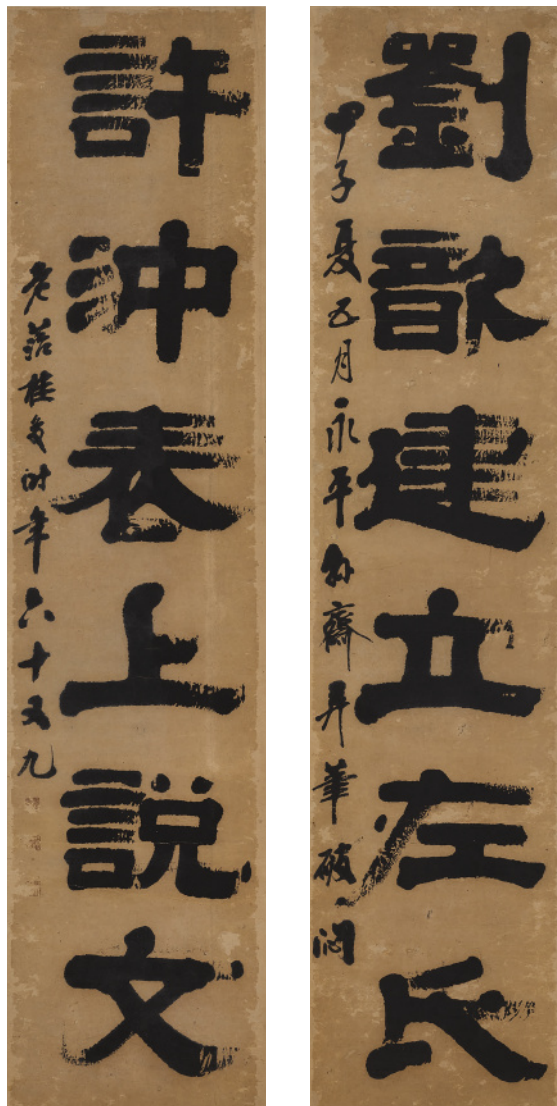 劉歆建立左氏
甲子夏五月永平外齋弄筆破悶
許沖表上說文
老菭桂馥時年六十又九